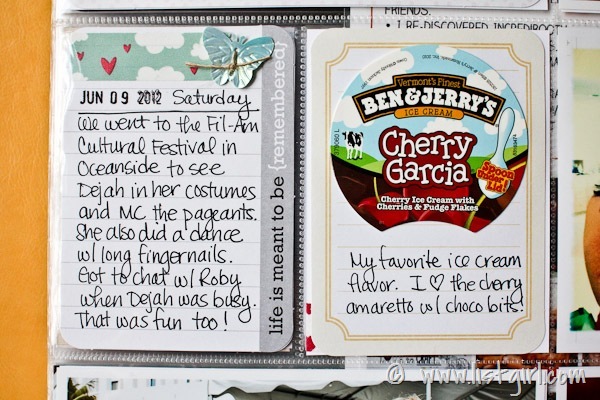 JUN 09 2012 Saturday
We went to the Fil-Am
Cultural Festival in
Oceanside to see
Dejah in her costumes
and MC the pageants.
She also did a dance
w/ long fingernails.
Got to chat w/ Roby
when Dejah was busy.
That was fun too!
life is meant to be {remembered}
I RE-DISCOVERED
Vermont's Finest
BEN & JERRY'S
ICE CREAM
Cherry
Garcia
Spoon
Cherry Ice Cream with
Cherries & Fudge Flakes
My favorite ice cream
flavor. I ♡ the cherry
amaretto w/ choco bits!
© www.listgirl.com